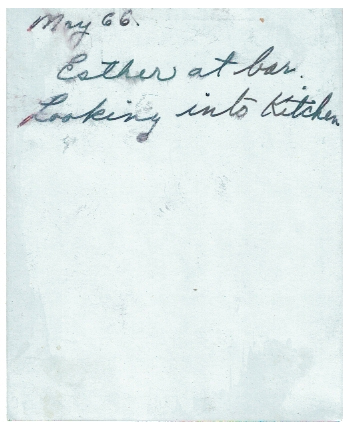 May 66.
Esther at bar.
Looking into Kitchen